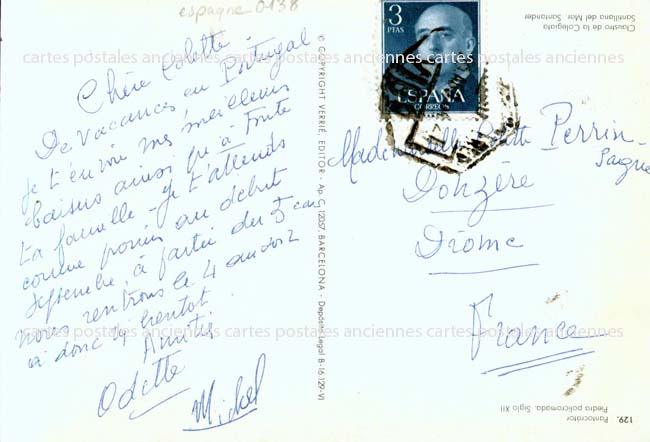 espagne 0138
Chère Colette
De vacances, au Portugal
Je t'envoie mes meilleurs
baisers ainsi qu'à toute
ta famille - Je t'attends
comme promis au début
septembre, à partir du 5 car
nous rentrons le 4 au soir
à donc bientôt
Amitiés
Odette
Michel
© COPYRIGHT VERRIÉ, EDITOR - Ap. C. 12037 BARCELONA - Depósito Legal B-16.129-VI
3
PTAS
ESPAÑA
CORREOS
Claustro de la Colegiata
Santillana del Mar Santander
Mademoiselle Colette Perrin-
Donzère
Drôme
France
129. Pantocrátor
Piedra policromada. Siglo XII
cartes postales anciennes cartes postales anciennes cartes postales anciennes
cartes postales anciennes cartes postales anciennes cartes postales anciennes